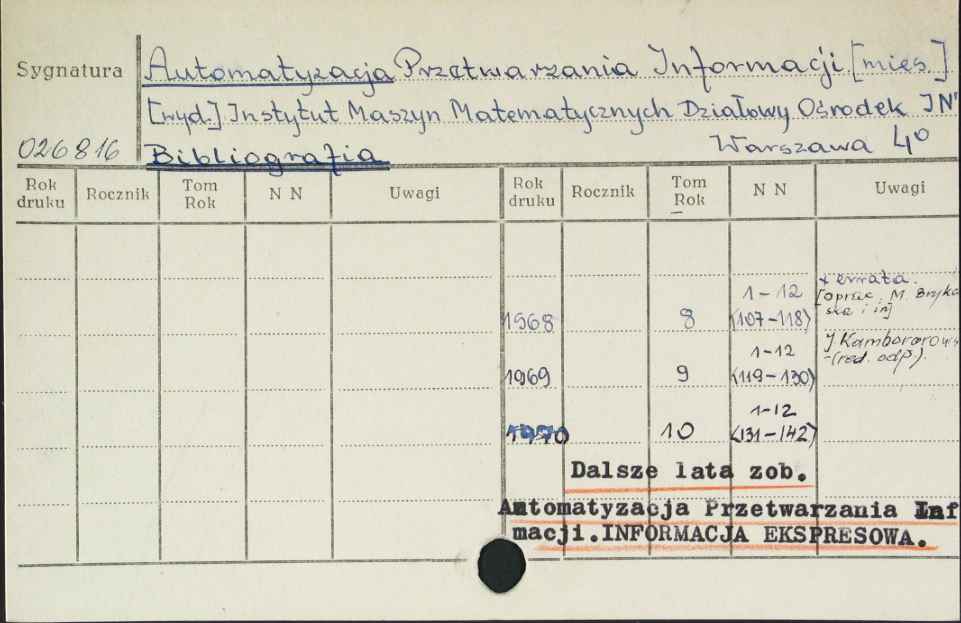 Sygnatura
Automatyzacja Przetwarzania Informacji [mies.]
[wyd.] Instytut Maszyn Matematycznych Działowy Ośrodek
026816
Bibliografia
Warszawa 4º
Rok druku Rocznik Tom Rok N N Uwagi Rok druku Rocznik Tom Rok N N Uwagi
+ errata.
1968 8 1-12 (107-118) [oprac. M.
ska i in]
1969 9 1-12 (119-130)
-(red. odp).
1970 10 1-12 (131-142)
Dalsze lata zob.
Automatyzacja Przetwarzania Inf
macji.INFORMACJA EKSPRESOWA.